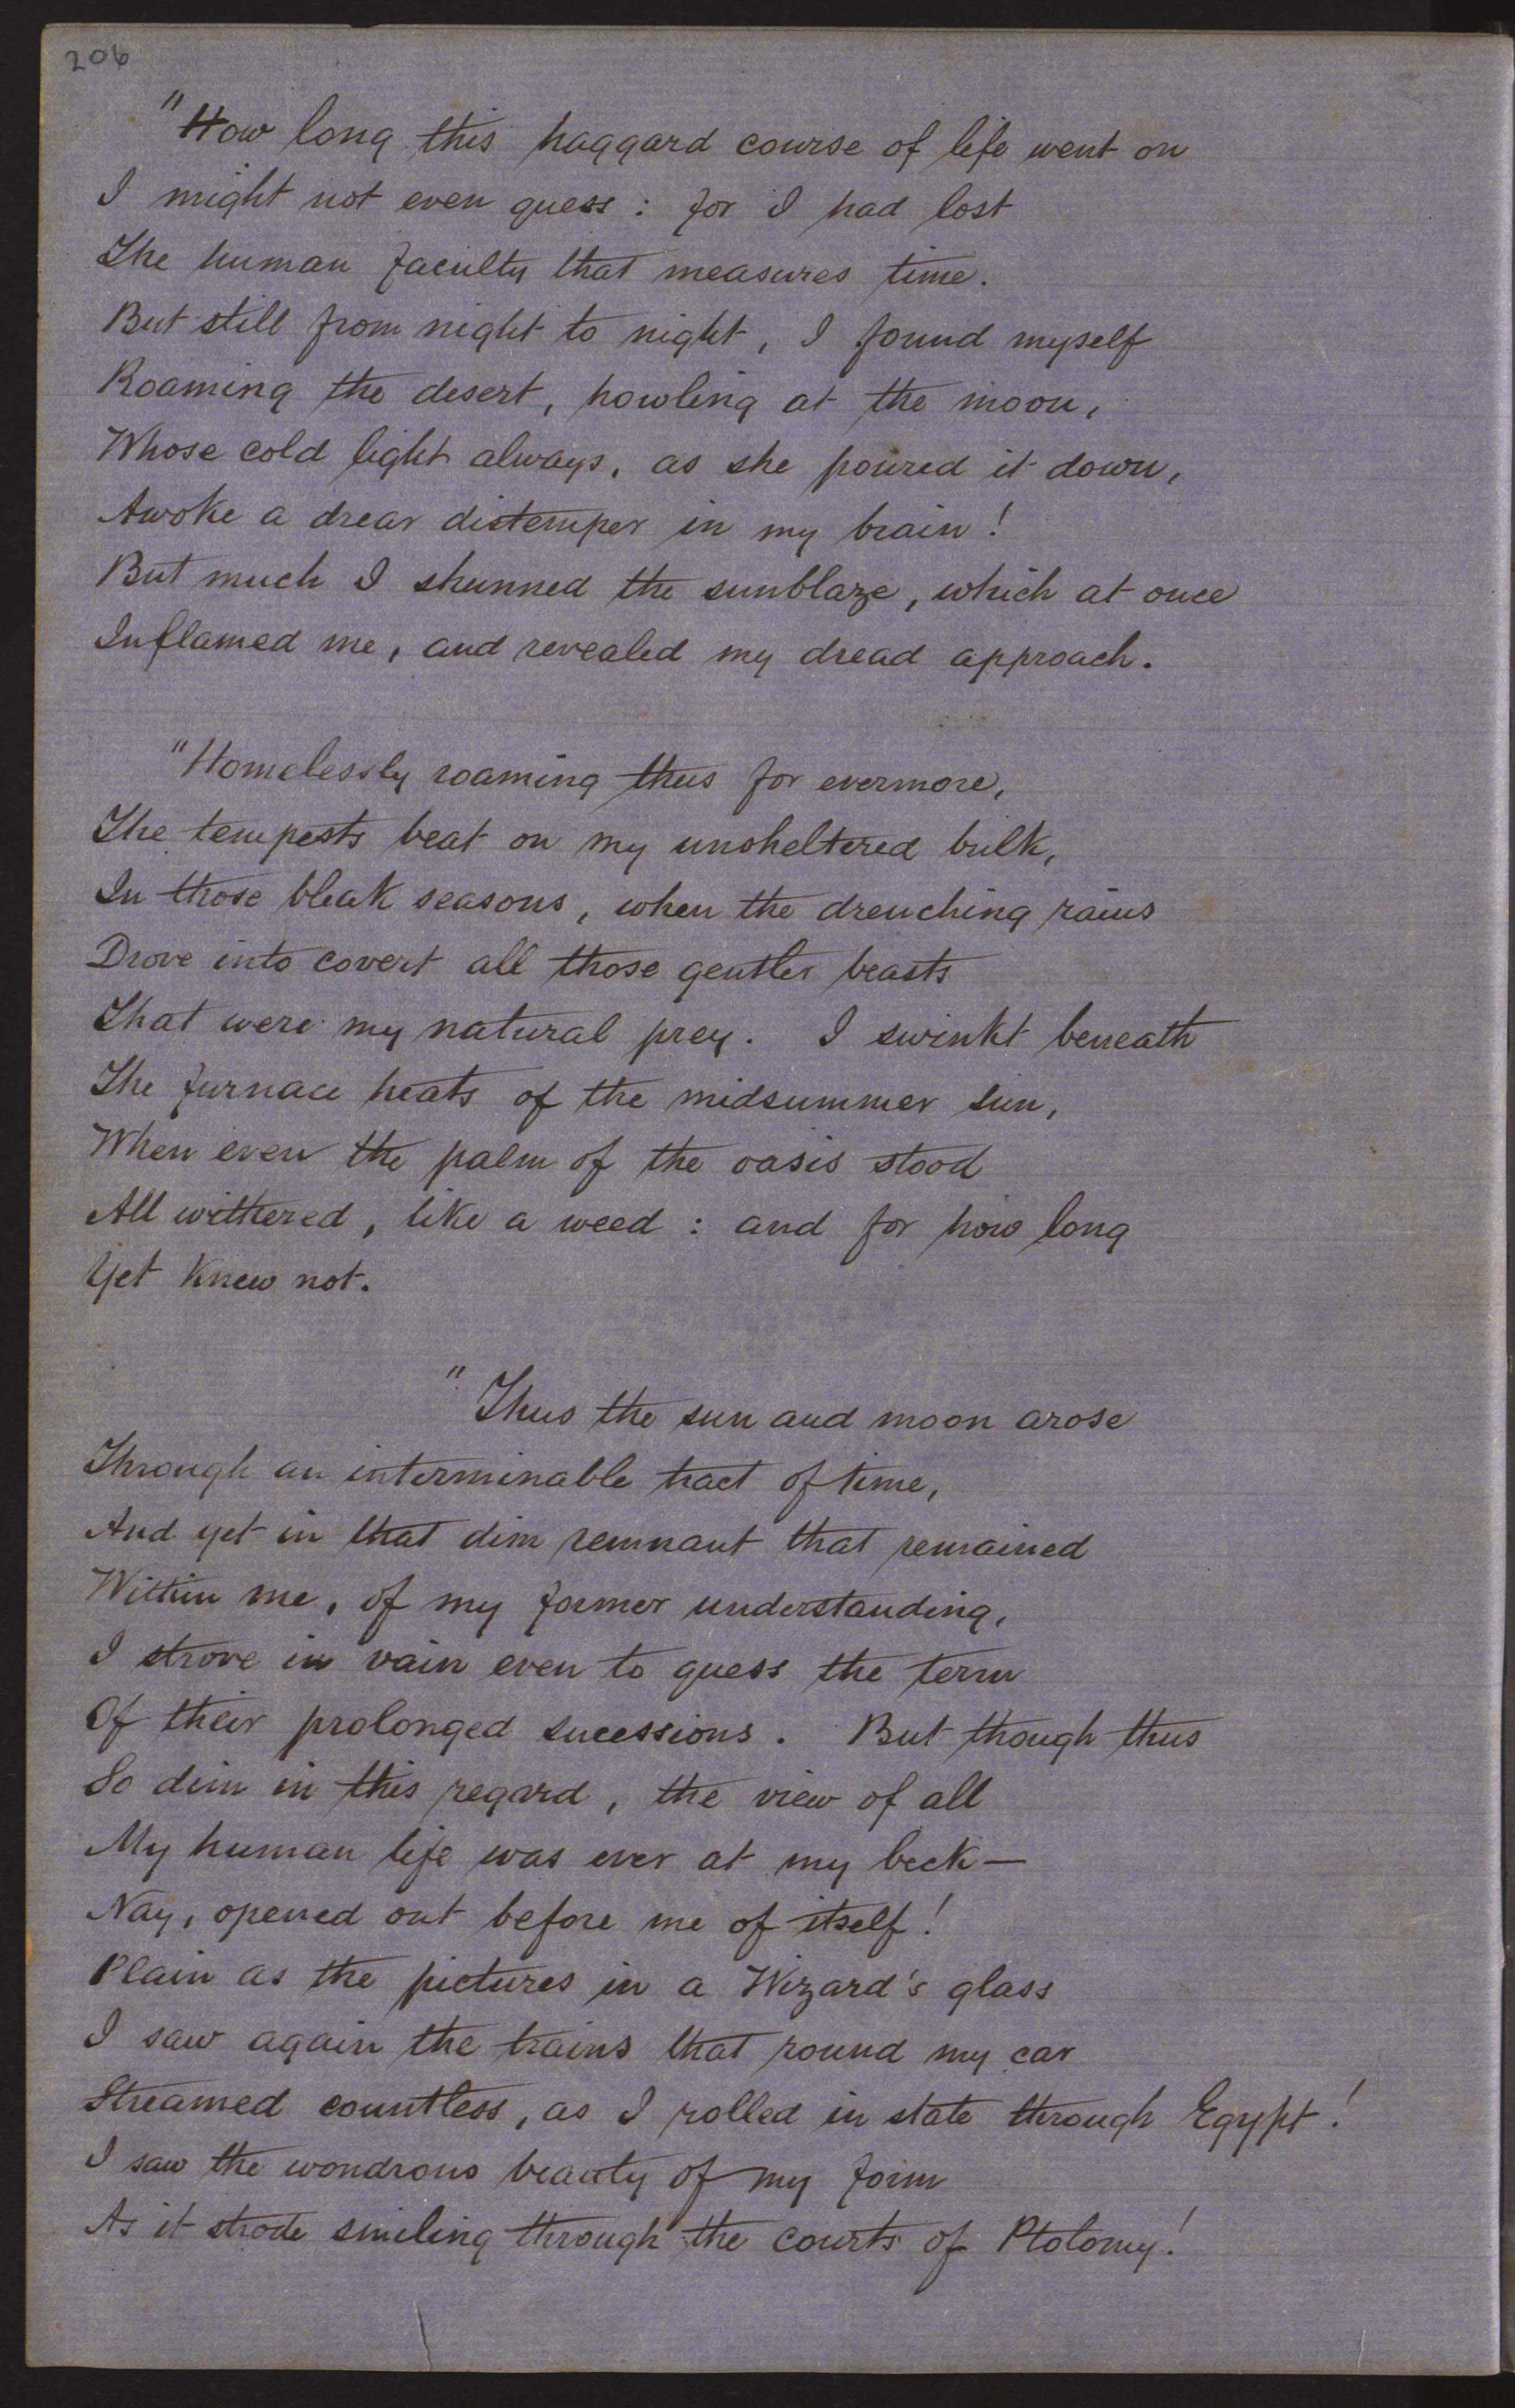 206
"How long this haggard course of life went on
I might not even guess : for I had lost
The human faculty that measures time.
But still from night to night, I found myself
Roaming the desert, howling at the moon,
Whose cold light always, as she poured it down,
Awoke a drear distemper in my brain!
But much I shunned the sunblaze, which at once
Inflamed me, and revealed my dread approach.
"Homelessly roaming thus for evermore,
The tempests beat on my unsheltered bulk,
In those bleak seasons, when the drenching rains
Drove into covert all those gentler beasts
That were my natural prey. I swinkt beneath
The furnace heats of the midsummer sun,
When even the palm of the oasis stood
All withered, like a weed : and for how long
Yet knew not.
"Thus the sun and moon arose
Through an interminable tract of time,
And yet in that dim remnant that remained
Within me, of my former understanding,
I strove in vain even to guess the term
Of their prolonged sucessions. But though thus
So dim in this regard, the view of all
My human life was ever at my beck—
Nay, opened out before me of itself!
Plain as the pictures in a Wizard's glass
I saw again the trains that round my car
Streamed countless, as I rolled in state through Egypt!
I saw the wondrous beauty of my form
As it strode smiling through the courts of Ptolomy!